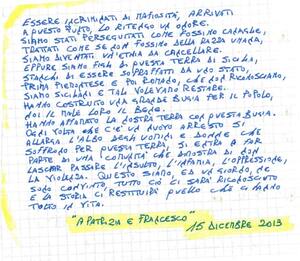 ESSERE INCRIMINATI DI MAFIOSITÀ, ARRIVATI
A QUESTO PUNTO, LO RITENGO UN ONORE.
SIAMO STATI PERSEGUITATI COME FOSSIMO CANAGLIE,
TRATTATI COME SE NON FOSSIMO DELLA RAZZA UMANA,
SIAMO DIVENTATI UN'ETNIA DA CANCELLARE.
EPPURE SIAMO FIGLI DI QUESTA TERRA DI SICILIA,
STANCHI DI ESSERE SOPRAFFATTI DA UNO STATO,
PRIMA PIEMONTESE E POI ROMANO, CHE NON RICONOSCIAMO,
SIAMO SICILIANI E TALI VOLEVAMO RESTARE.
HANNO COSTRUITO UNA GRANDE BUGIA PER IL POPOLO,
NOI IL MALE LORO IL BENE.
HANNO AFFAMATO LA NOSTRA TERRA CON QUESTA BUGIA.
OGNI VOLTA CHE C'È UN NUOVO ARRESTO SI
ALLARGA L'ALBO DEGLI UOMINI E DONNE CHE
SOFFRONO PER QUESTA TERRA, SI ENTRA A FAR
PARTE DI UNA COMUNITÀ CHE DIMOSTRA DI NON
LASCIAR PASSARE L'INSULTO, L'INFAMIA, L'OPPRESSIONE,
LA VIOLENZA. QUESTO SIAMO, ED UN GIORNO, NE
SONO CONVINTO, TUTTO CIÒ CI SARÀ RICONOSCIUTO
E LA STORIA CI RESTITUIRÀ QUELLO CHE CI HANNO
TOLTO IN VITA.
"A PATRIZIA E FRANCESCO"
15 DICEMBRE 2013